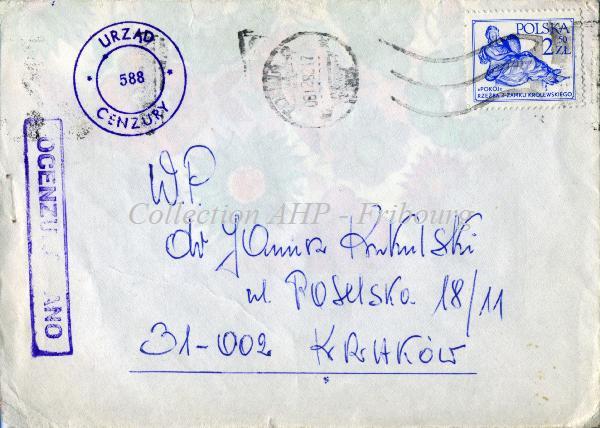 URZĄD
588
CENZURY
POLSKA
2 50 ZŁ
«POKÓJ»
RZEŹBA Z ZAMKU KRÓLEWSKIEGO
OCENZU ANO
W.P.
dr Janusz Kukulski
ul. Poselska 18/11
31-002 KRAKÓW
Collection AHP - Fribourg